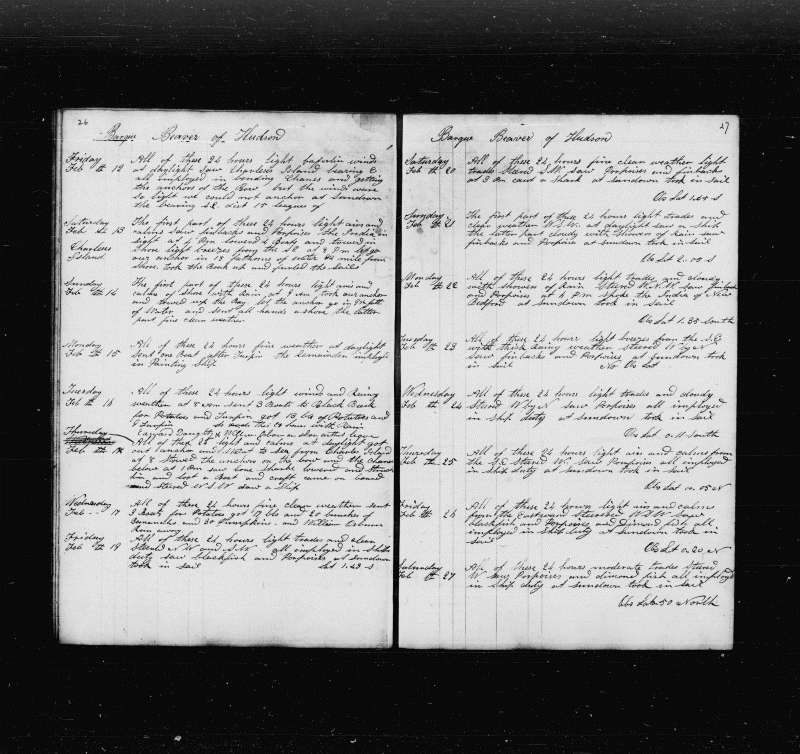 26
Barque Beaver of Hudson
Friday All of these 24 hours light baferlin winds
Feb th 12 at daylight saw Charleses Island bearing E
all employed in bending Chanes and getting
the anchors of the Bow but the winds were
so light we could not anchor at Sundown
the bearing SE dist 15 leagues
Saturday The first part of these 24 hours light airs and
Feb th 13 calms saw finbacks and Porpoises The
Charleses sight at 4 Pm lowered 2 Boats and towed in
Island Shore light breezes from the SE at 8 Pm let go
our anchor in 18 fathoms of water mile from
Shore took the Boats up and furled the Sails
Sunday The first part of these 24 hours light airs and
Feb th 14 calms of Shore with Rain at 9 Am took our anchor
and towed up the Bay let the anchor go in
of Water and sent all hands a shore the latter
part fine clear weather
Monday All of these 24 hours fine weather at daylight
Feb th 15 sent one Boat after Turpin the Remainder employed
in Painting Ship
Tuesday All of these 24 hours light winds and Rainy
Feb th 16 weather at 8 Am sent 3 Boats to Black Beach
for Potatoes and Turpin got 13 bbs of Potatoes and
9 Turpin So ends this 24 hours with Rain
Thursday
Feb th 18 All of thes 24 light airs and calms at daylight got
our anchor and out to Sea from Charles Island
at 8 Stowed the anchors on the bow and the chanes
below at 1 Am saw Sone Sharks lowerd and Struck
him and lost a Boat and craft came on board
and stered W S W saw a Ship
Wednesday All of these 24 hours fine clear weather sent
Feb - 17 3 Boats for Potatoes got 17 bbs and 20 bunches of
Bananahs and 30 Pumpkins. and William Osburn
Run away
Friday All of these 24 hours light trades and clear
Feb th 19 Steard N.W and S.W all employed in Ship
duty saw Blackfish and Porpoises at sundown
took in sail Lat 1.43 S
27
Barque Beaver of Hudson
Saturday All of these 24 hours fine clean weather light
Feb th 20 trades Steerd S.W. saw Porpoises and finbacks
at 3 Am caut a Shark at sundown took in sail
Obs Lat 1.48 S
Sunday The first part of these 24 hours light trades and
Feb th 21 clear weather W.S.W. at daylight saw a Ship
the latter part cloudy with Showers of Rain saw
finbacks and Porpoise at sundown took in sail
Obs Lat 2.05 S
Monday All of these 24 hours light trades and cloudy
Feb th 22 with showers of Rain Steerd W.N.W. saw finbacks
and Porpoises at 4 Pm Spoke the India of New
Bedford at sundown took in sail
Obs Lat 1.35 South
Tuesday All of these 24 hours light breezes from the S.E
Feb th 23 with thick Rainy weather Steerd W by N
Saw finbacks and Porpoises at Sundown took
in sail No Obs Lat
Wednesday All of these 24 hours light trades and cloudy
Feb th 24 Steerd W by N saw Porpoises all employed
in Ship duty at sundown took in sail
Obs Lat 0.11 South
Thursday All of these 24 hours light airs and calms from
Feb th 25 the S.E Steerd W. saw Porpoises all employed
in Ship duty at sundown took in sail
Obs Lat 00.05 N
Friday All of these 24 hours light airs and calms
Feb th 26 from the Eastward Steered W.N.W Saw
blackfish and Porpoises and Dimond fish all
employed in Ship duty at sundown took in
Sail
Obs Lat 0.20 N
Saturday All of these 24 hours moderate trades Steerd
Feb th 27 W saw Porpoises and dimond fish all employed
in Ship duty at sundown took in sail
Obs Lat 50 North